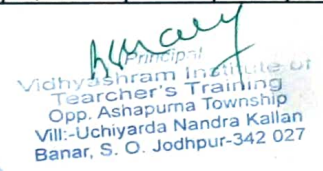 Principal
Vidhyashram Institute of
Tearcher's Training
Opp. Ashapurna Township
Vill:-Uchiyarda Nandra Kallan
Banar, S. O. Jodhpur-342 027